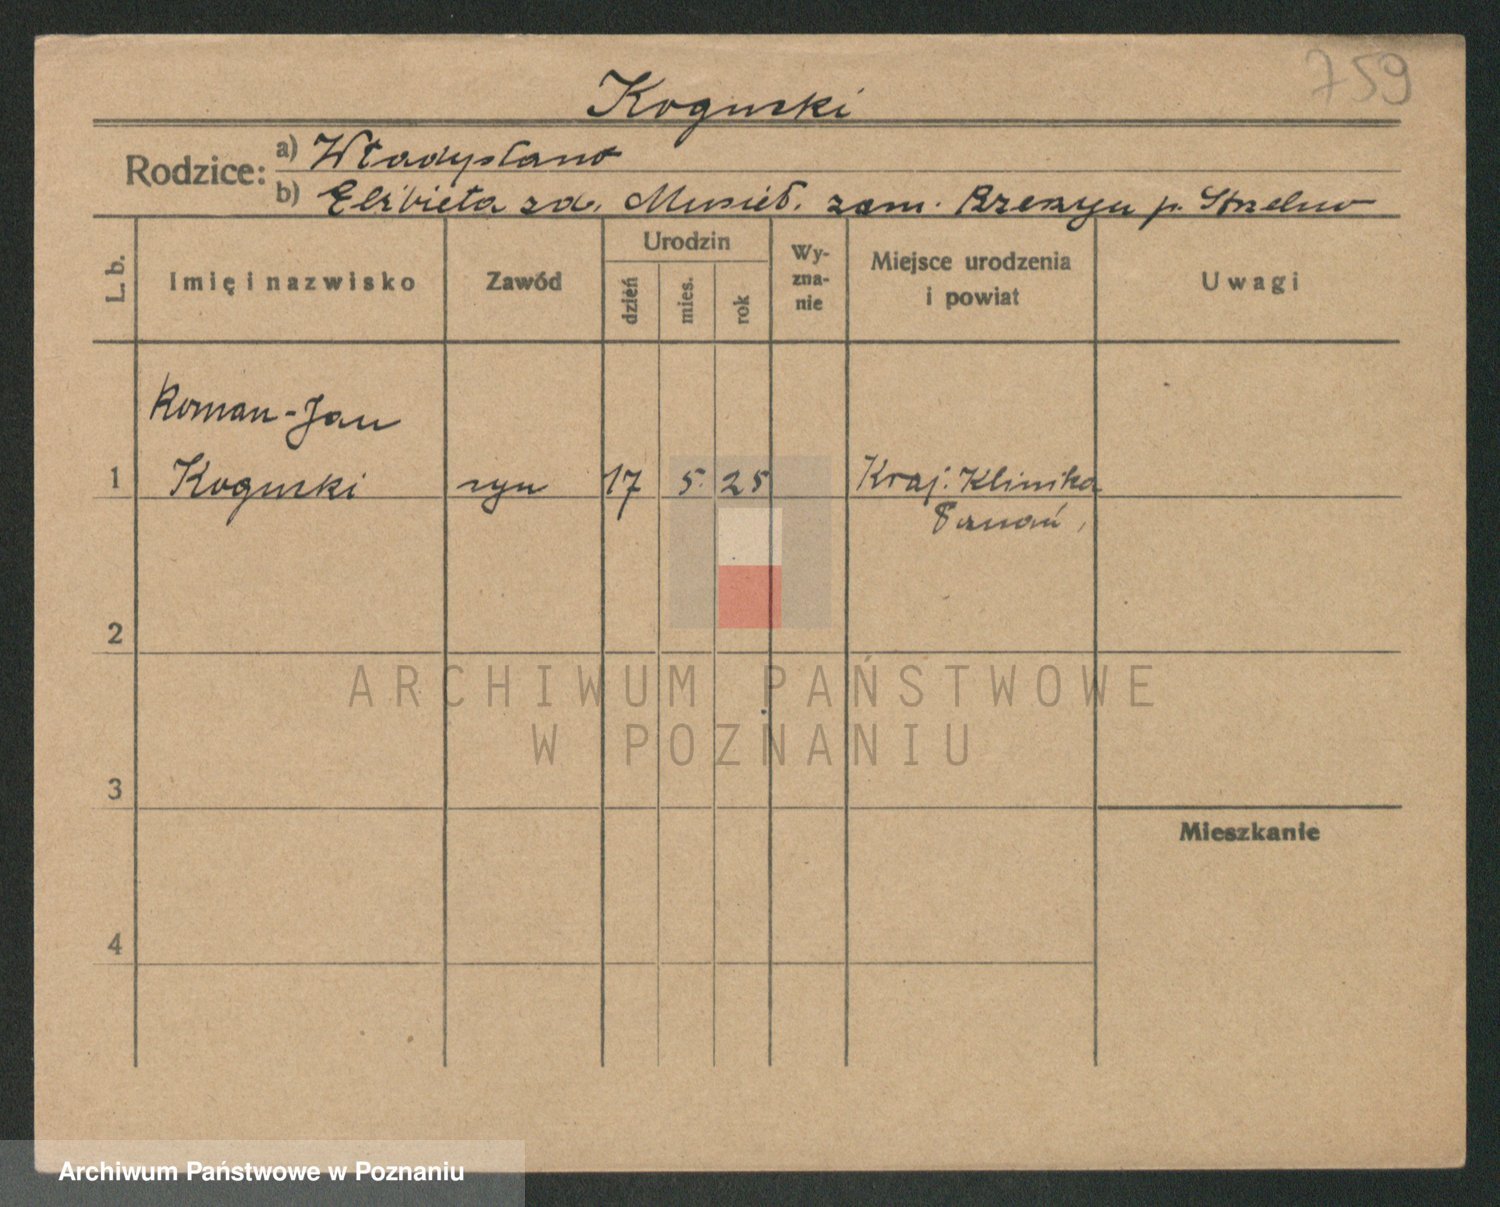 759
Kogurski
Rodzice: a) Władysław
b) Elżbieta zd. Musieł. zam. Rzeszyn p. Strzelno
L. b.
Imię i nazwisko
Zawód
Urodzin
dzień
mies.
rok
Wy-
zna-
nie
Miejsce urodzenia
i powiat
Uwagi
Roman-Jan
1 Kogurski syn 17 5. 25 Kraj. Klinika
Poznań,
2
3
Mieszkanie
4
ARCHIWUM PAŃSTWOWE
W POZNANIU
Archiwum Państwowe w Poznaniu